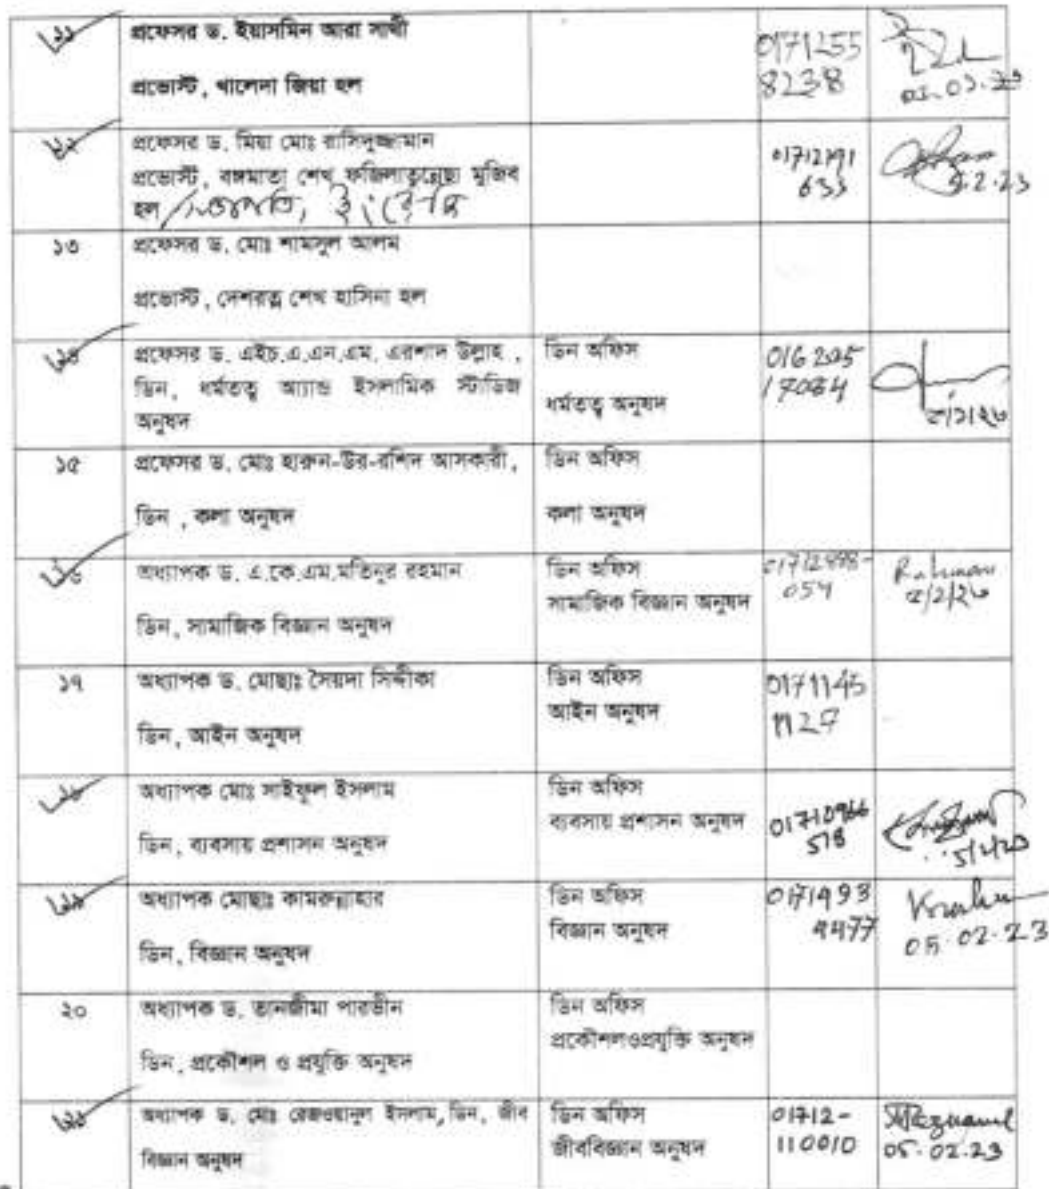 ১১
প্রফেসর ড. ইয়াসমিন আরা সাথী
প্রভোস্ট, খালেদা জিয়া হল
0171255
8238
১২
প্রফেসর ড. মিয়া মোঃ রাসিদুজ্জামান
প্রভোস্ট, বঙ্গমাতা শেখ ফজিলাতুন্নেছা মুজিব
হল
633
2.23
১৩
প্রফেসর ড. মোঃ শামসুল আলম
প্রভোস্ট, দেশরত্ন শেখ হাসিনা হল
১৪
প্রফেসর ড. এইচ.এ.এন.এম. এরশাদ উল্লাহ ,
ডিন, ধর্মতত্ত্ব অ্যান্ড ইসলামিক স্টাডিজ
অনুষদ
ডিন অফিস
ধর্মতত্ত্ব অনুষদ
016 205
17084
১৫
প্রফেসর ড. মোঃ হারুন-উর-রশিদ আসকারী,
ডিন , কলা অনুষদ
ডিন অফিস
কলা অনুষদ
১৬
অধ্যাপক ড. এ.কে.এম.মতিনুর রহমান
ডিন, সামাজিক বিজ্ঞান অনুষদ
ডিন অফিস
সামাজিক বিজ্ঞান অনুষদ
054
Rahman
১৭
অধ্যাপক ড. মোছাঃ সৈয়দা সিদ্দীকা
ডিন, আইন অনুষদ
ডিন অফিস
আইন অনুষদ
0171145
1127
১৮
অধ্যাপক মোঃ সাইফুল ইসলাম
ডিন, ব্যবসায় প্রশাসন অনুষদ
ডিন অফিস
ব্যবসায় প্রশাসন অনুষদ
01710966
518
১৯
অধ্যাপক মোছাঃ কামরুন্নাহার
ডিন, বিজ্ঞান অনুষদ
ডিন অফিস
বিজ্ঞান অনুষদ
0171493
4477
05.02.23
২০
অধ্যাপক ড. তানজীমা পারভীন
ডিন, প্রকৌশল ও প্রযুক্তি অনুষদ
ডিন অফিস
প্রকৌশলওপ্রযুক্তি অনুষদ
২১
অধ্যাপক ড. মোঃ রেজওয়ানুল ইসলাম, ডিন, জীব
বিজ্ঞান অনুষদ
ডিন অফিস
জীববিজ্ঞান অনুষদ
01712-
110010
05.02.23